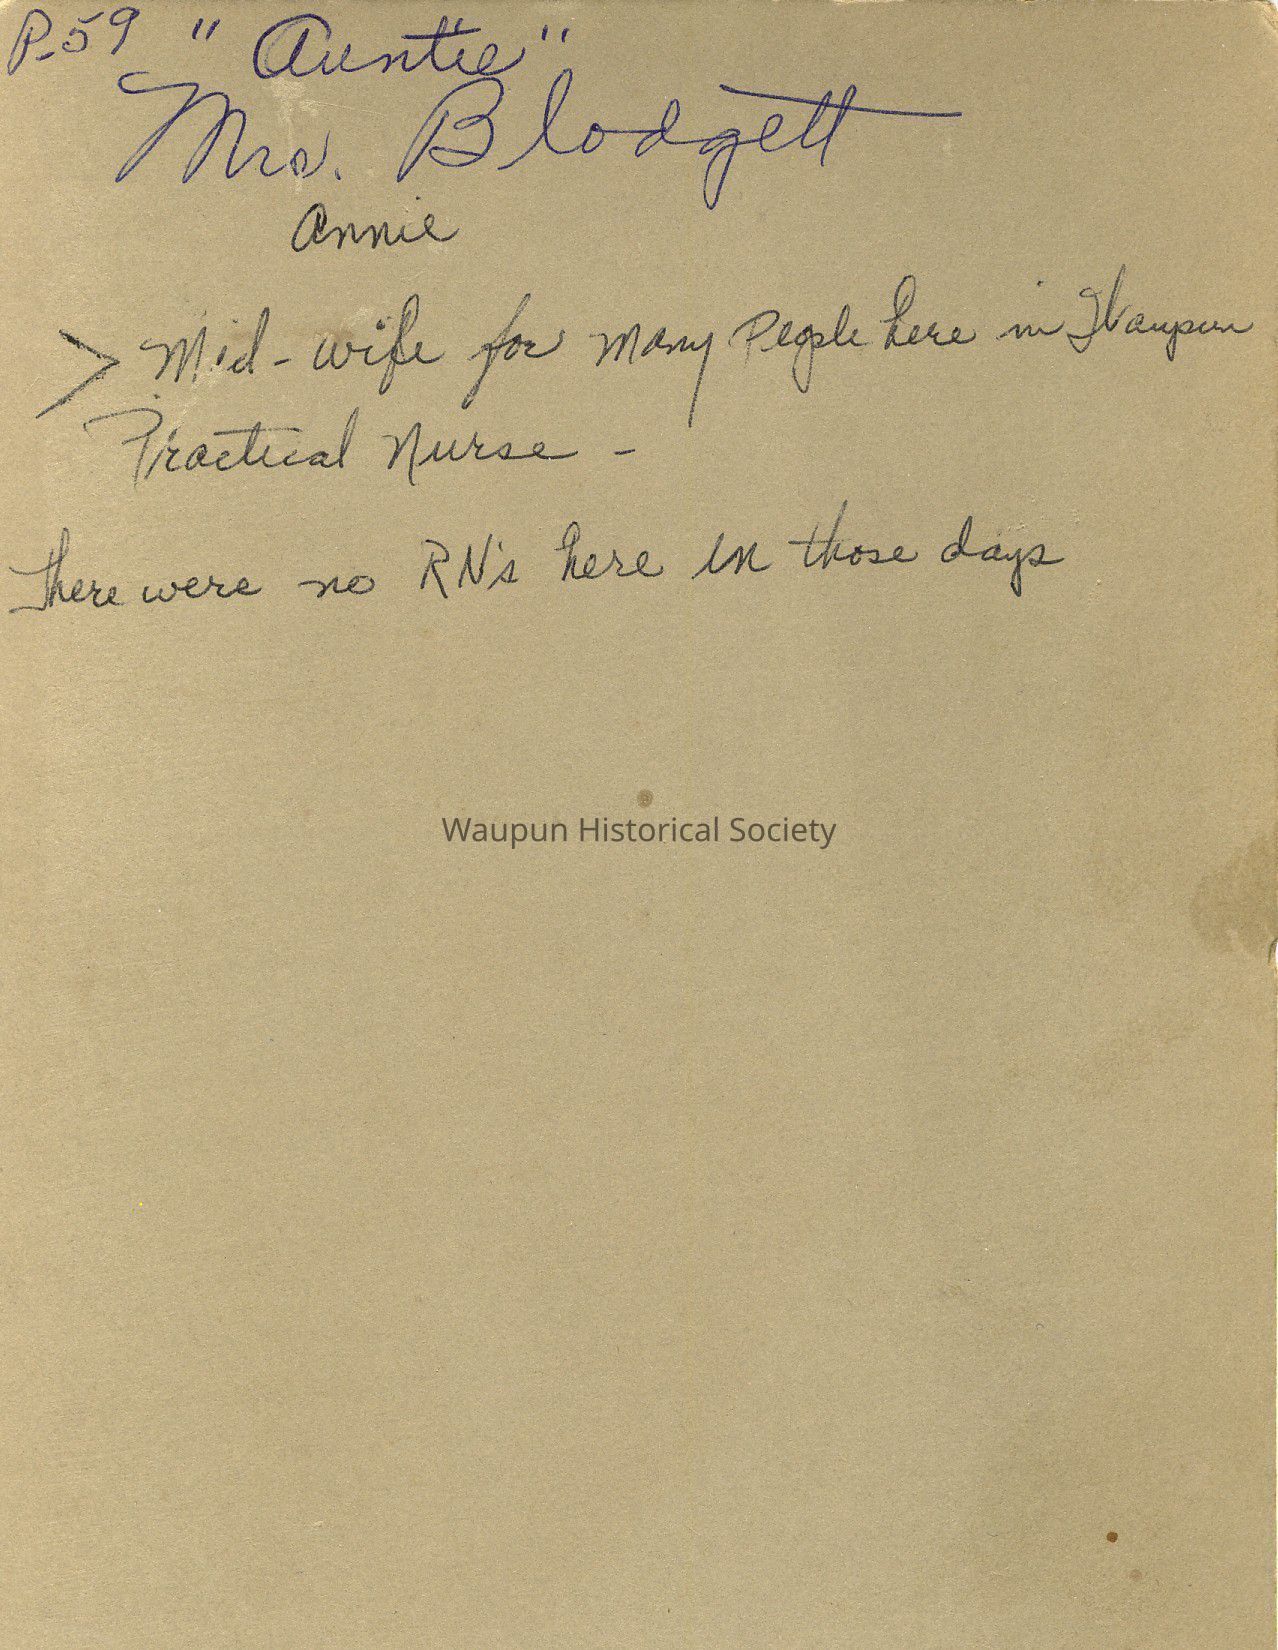 P.59 "Auntie"
Mrs. Blodgett
Annie
> Mid-wife for many People here in Waupun
Practical Nurse -
There were no RN's here in those days
Waupun Historical Society